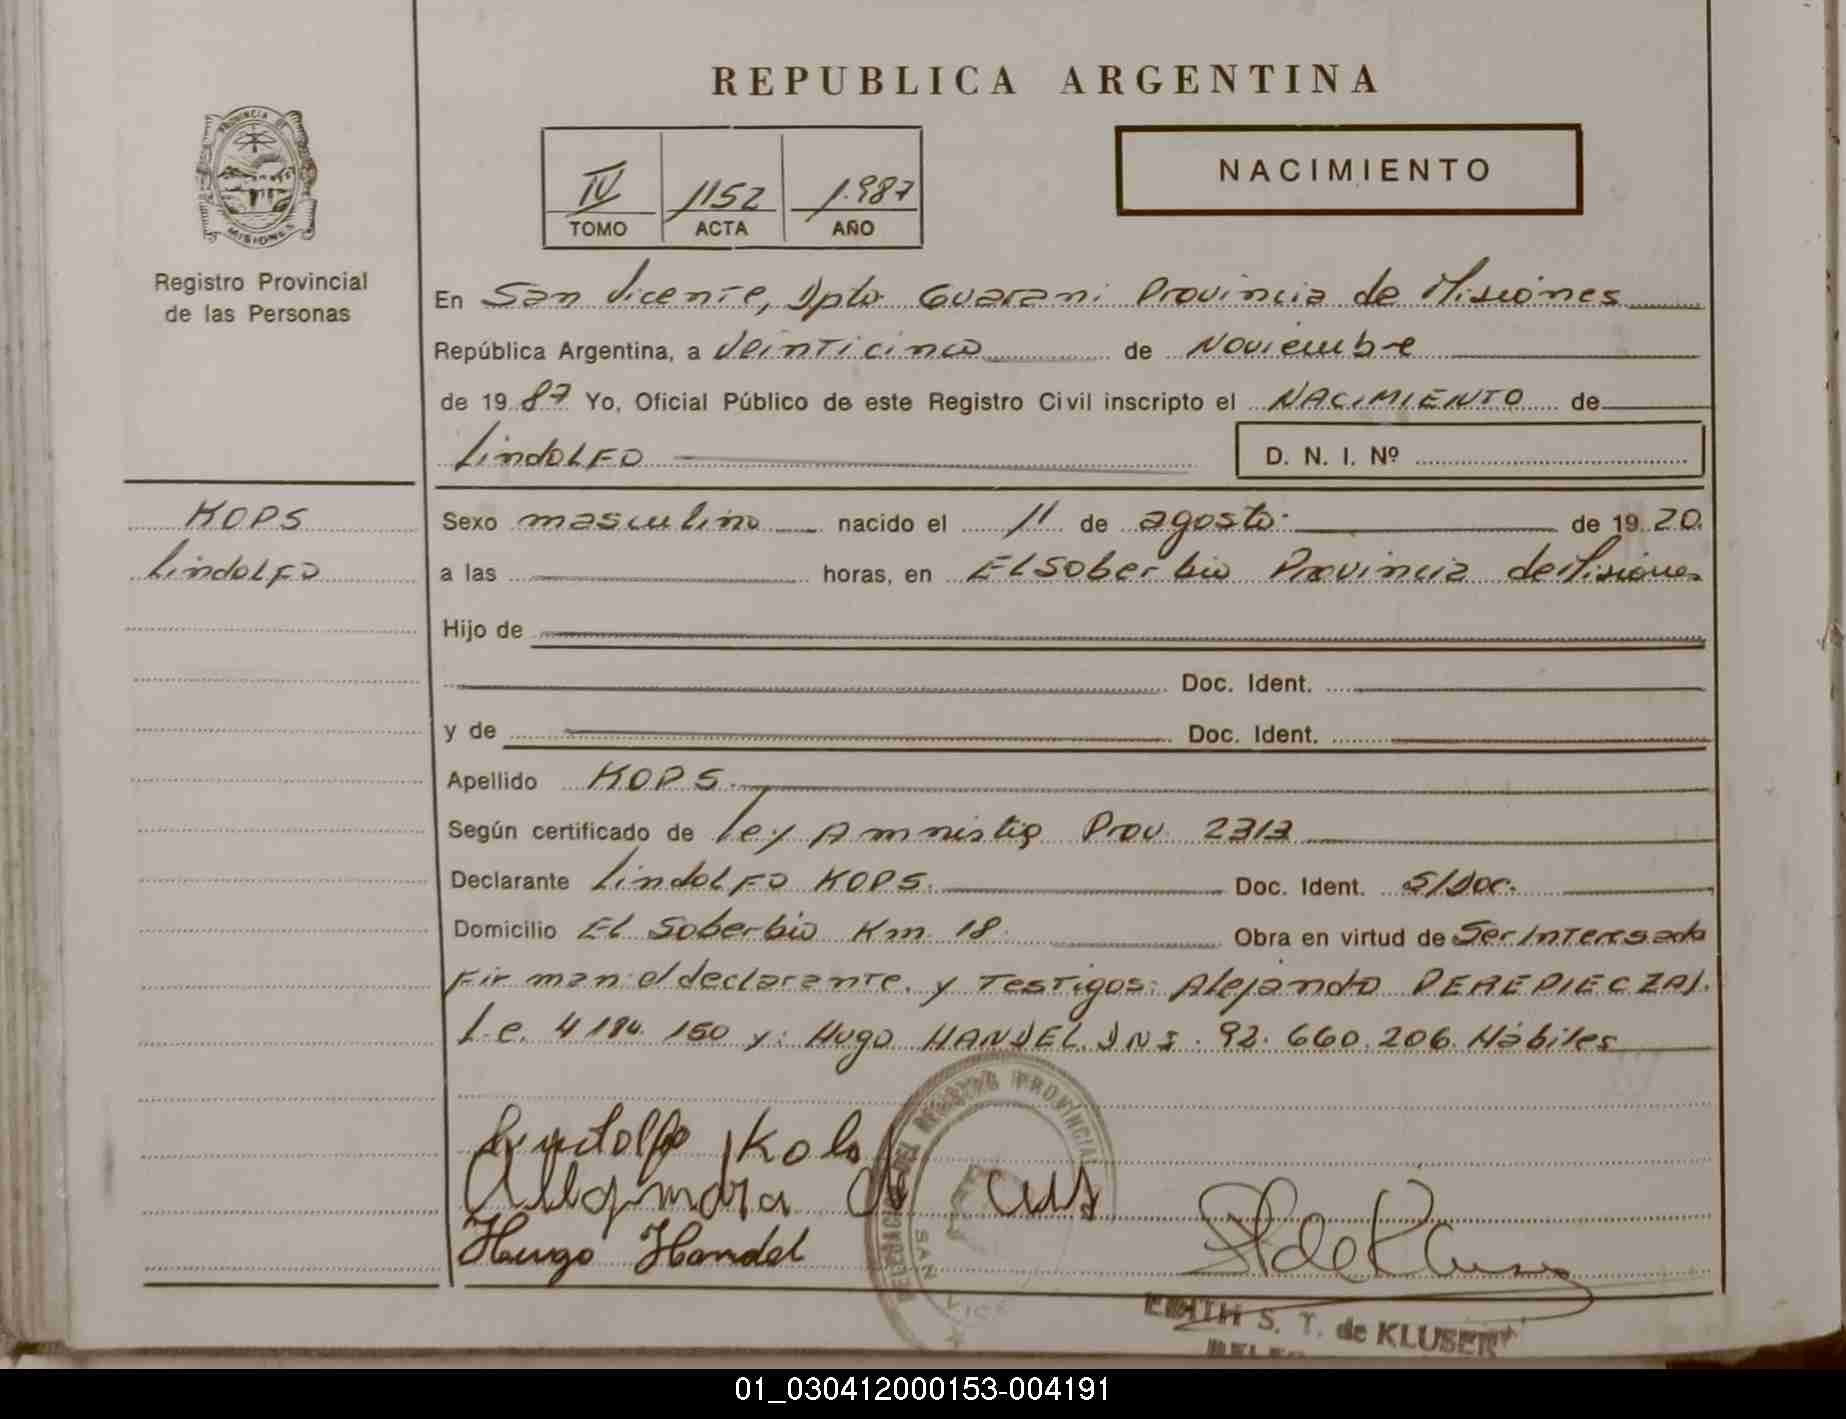 REPUBLICA ARGENTINA
PROVINCIA DE
MISIONES
Registro Provincial
de las Personas
IV 1152 1.987
TOMO ACTA AÑO
NACIMIENTO
En San Vicente, Dpto Guarani Provincia de Misiones
República Argentina, a Veinticinco de Noviembre
de 19 87 Yo, Oficial Público de este Registro Civil inscripto el NACIMIENTO de
LindoLFO
D. N. I. Nº
KOPS
LindoLFO
Sexo masculino nacido el 11 de agosto de 19 20.
a las horas, en EL Soberbio Provincia de Misiones
Hijo de
Doc. Ident.
y de Doc. Ident.
Apellido KOPS.
Según certificado de Ley Amnistia Prov. 2313
Declarante LindoLFO KOPS. Doc. Ident. S/Doc.
Domicilio EL Soberbio Km 18 Obra en virtud de Ser Interesado
Firman el declarante. y Testigos: Alejando PEREPIECZAJ.
L.e. 4 184 150 y: Hugo HANDEL. DNI. 92.660.206 Hábiles
Hugo Handel
DELEGACION DEL REGISTRO PROVINCIAL
SAN VICE
EDITH S. T. de KLUSER
01_030412000153-004191